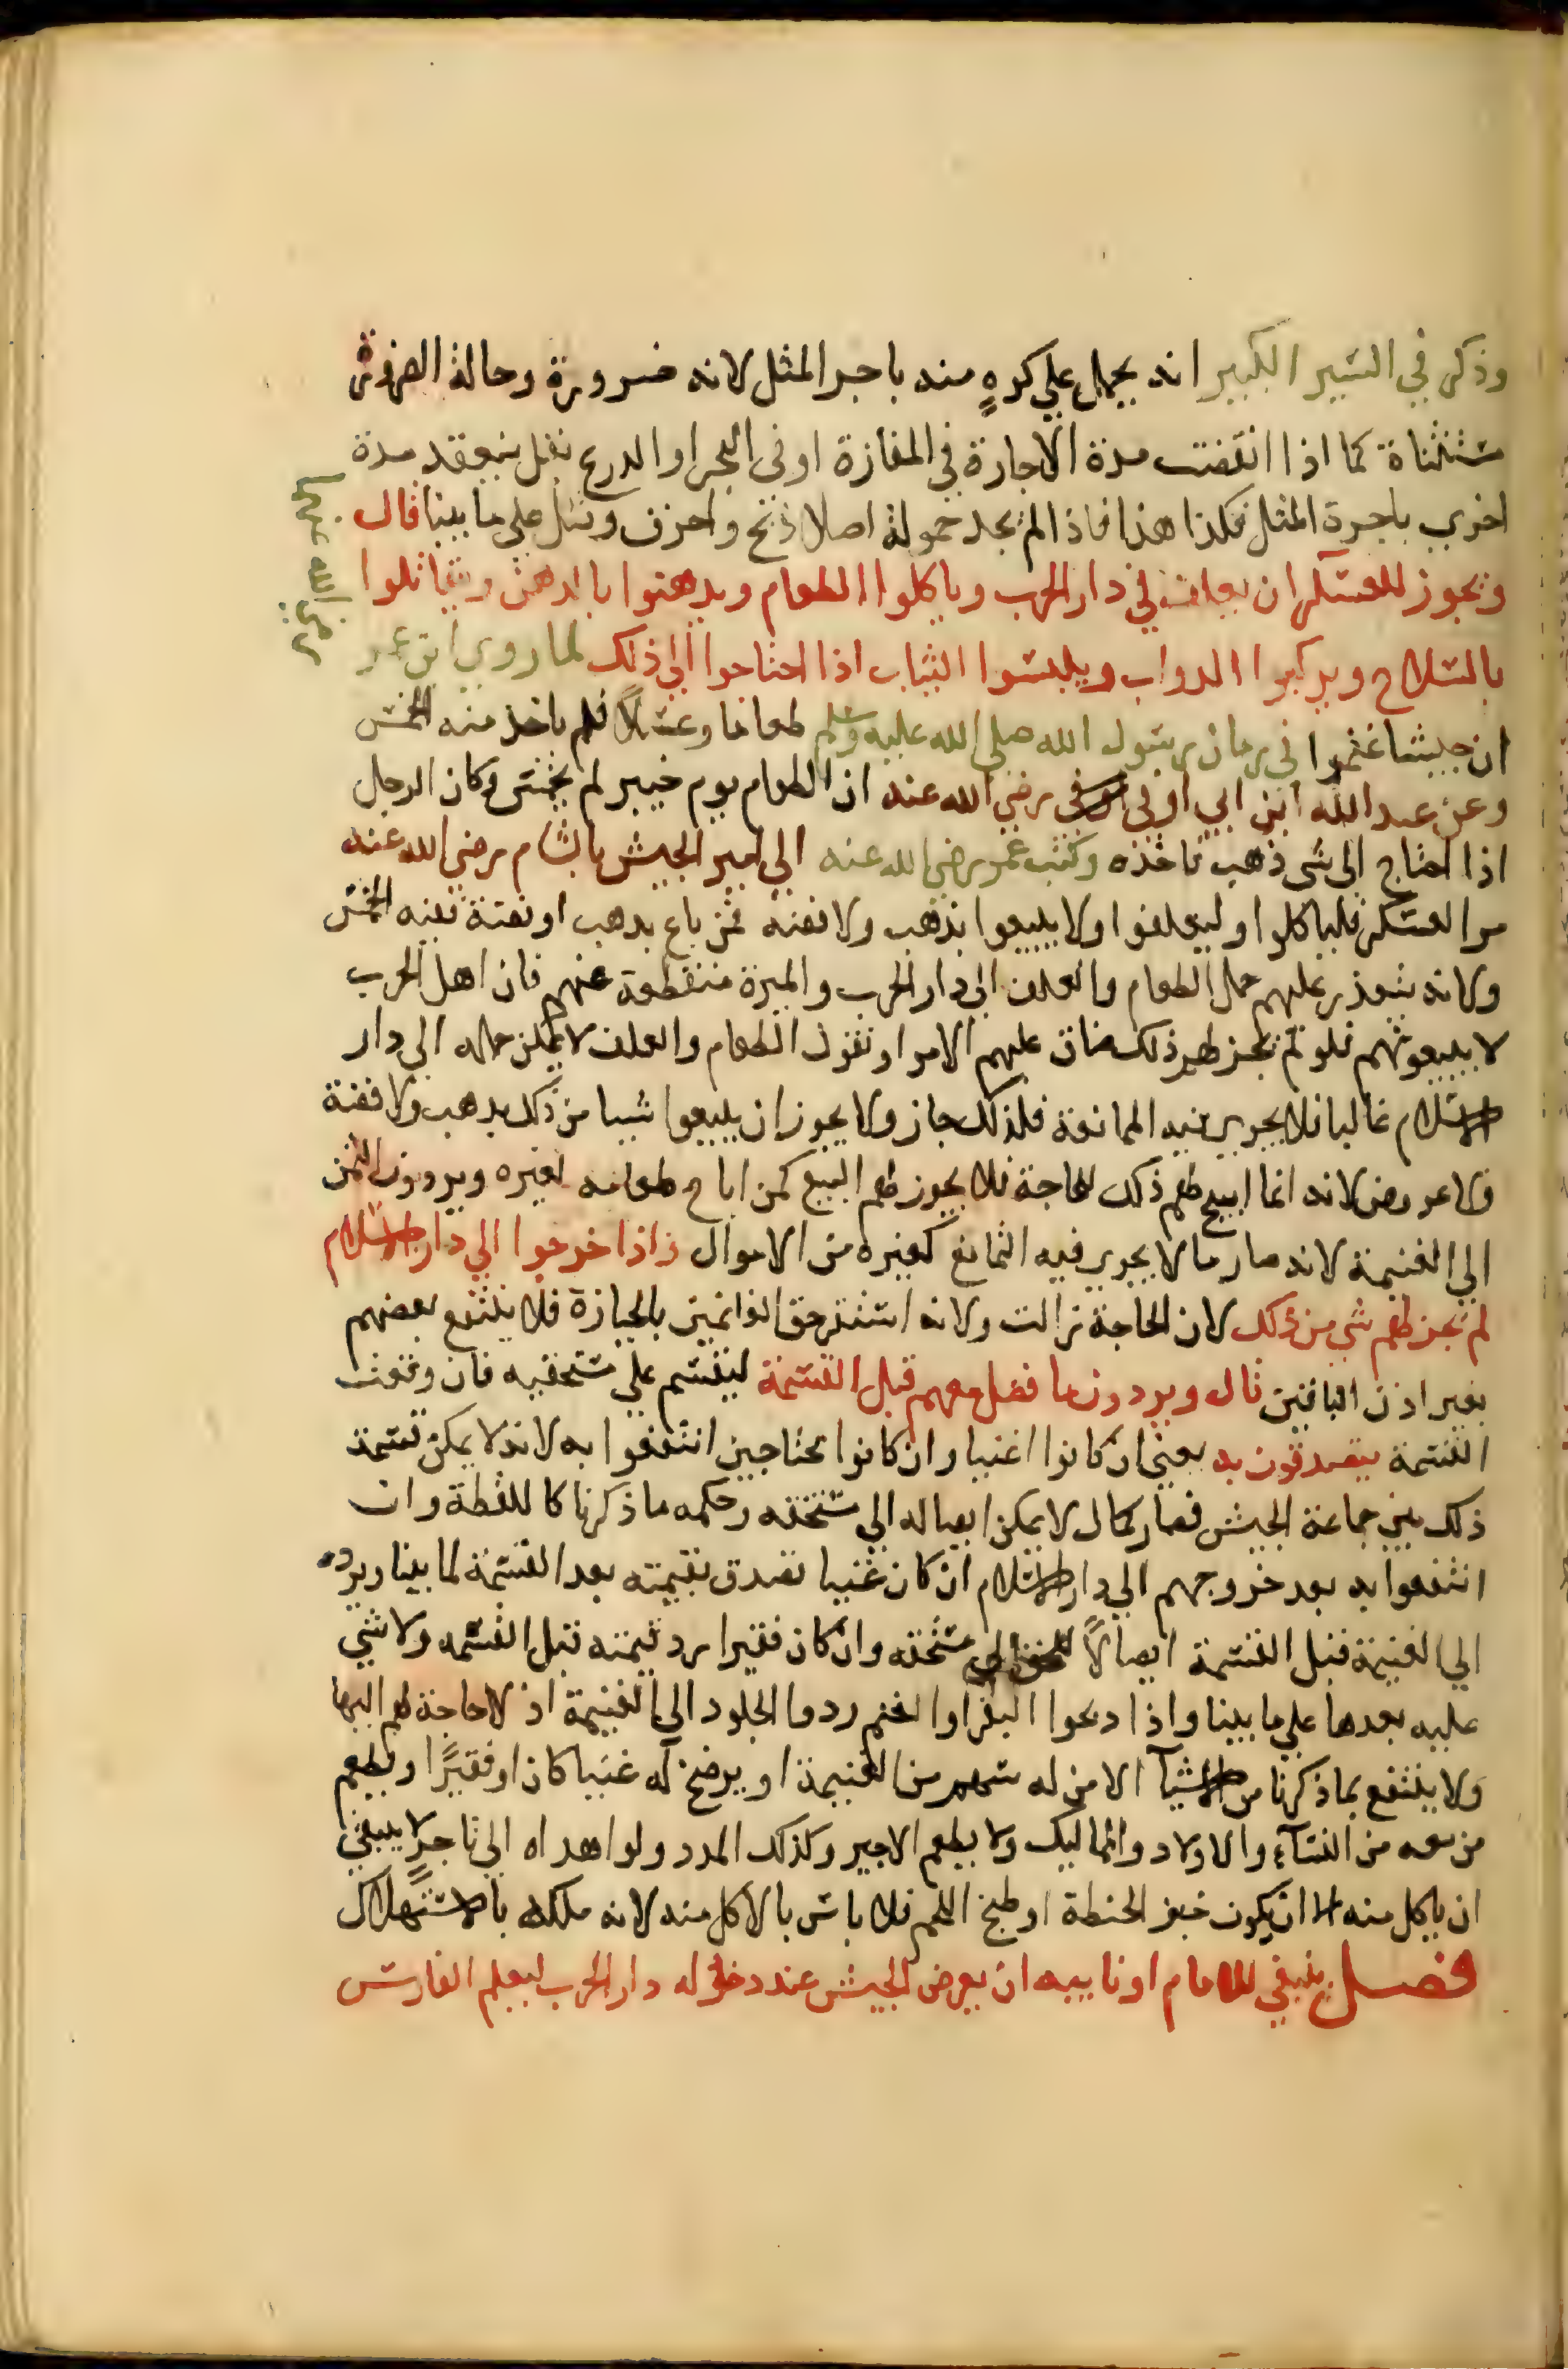 وذكر في السير الكبير انه يحمل على كره منه باجر المثل لانه ضرورة وحالة الضرورة
مستثناة كما اذا انقضت مدة الاجارة في المفازة او في البحر او الدرع بقل ينعقد مدة
اخرى باجرة المثل فكذا هذا فاذا لم يجد حمولة اصلا ذبح واحرق وقتل على ما بينا قال
ويجوز للعسكر ان يعلف في دار الحرب وياكلوا الطعام ويدهنوا بالدهن ويقاتلوا
بالسلاح ويركبوا الدواب ويلبسوا الثياب اذا احتاجوا الى ذلك لما روى ابن عمر
ان جيشا غنموا في زمان رسول الله صلى الله عليه وسلم طعاما وعسلا فلم ياخذ منه الخمس
وعن عبد الله ابن ابي اوفى رضي الله عنه ان الطعام يوم خيبر لم يخمس وكان الرجل
اذا احتاج الى شي ذهب ناخذه وكتب عمر رضي الله عنه الى امير الجيش بالشام رضي الله عنه
مر العسكر فلياكلوا وليعلفوا ولا يبيعوا بذهب ولا فضة فمن باع بذهب او فضة ففيه الخمس
ولانه يتعذر عليهم حمل الطعام والعلف الى دار الحرب والميرة منقطعة عنهم فان اهل الحرب
لا يبيعونهم فلو لم يجز لهم ذلك ضاق عليهم الامر او نقول الطعام والعلف لا يمكن حمله الى دار
الاسلام غالبا فلا يجري فيه الممانعة فلذلك جاز ولا يجوز ان يبيعوا شيا من ذلك بذهب ولا فضة
ولا عروض لانه انما ابيح لهم ذلك للحاجة فلا يجوز لهم البيع كمن اباح طعامه لغيره ويردون الثمن
الى الغنيمة لانه صار مالا يجري فيه التمانع كغيره من الاموال واذا خرجوا الى دار الاسلام
لم يجز لهم شي من ذلك لان الحاجة زالت ولانه استقر حق الغانمين بالحيازة فلا ينتفع بعضهم
بغير اذن الباقين قال ويردون ما فضل معهم قبل القسمة ليقسم على مستحقيه فان وقعت
القسمة يتصدقون به يعني ان كانوا اغنيا وان كانوا محتاجين انتفعوا به لانه لا يمكن قسمة
ذلك بين جماعة الجيش فصار كمال لا يمكن ايصاله الى مستحقه وحكمه ما ذكرنا كاللقطة وان
انتفعوا به بعد خروجهم الى دار الاسلام ان كان غنيا تصدق بقيمته بعد القسمة لما بينا ويرده
الى الغنيمة قبل القسمة ايصالا للحق الى مستحقه وان كان فقيرا رد قيمته قبل القسمه ولا شي
عليه بعدها على ما بينا واذا ذبحوا البقر او الغنم ردوا الجلود الى الغنيمة اذ لا حاجة لهم اليها
ولا ينتفع بما ذكرنا من الاشيآ الا من له سهم من الغنيمة او يرضخ له غنيا كان او فقيرا ويطعم
من معه من النسآء والاولاد والمماليك ولا يطعم الاجير وكذلك المدد ولو اهداه الى تاجر لا ينبغي
ان ياكل منه الا ان يكون خبز الحنطة او طبخ اللحم فلا باس بالاكل منه لانه ملكه بالاستهلاك
فصل ينبغي للامام او نايبه ان يعرض الجيش عند دخوله دار الحرب ليعلم الفارس